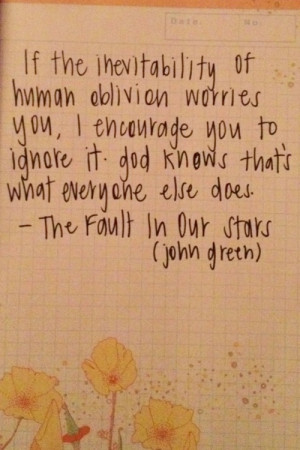 Date. No.
If the inevitability of
human oblivion worries
you, I encourage you to
ignore it. god knows that's
what everyone else does.
- The Fault In Our stars
(john green)